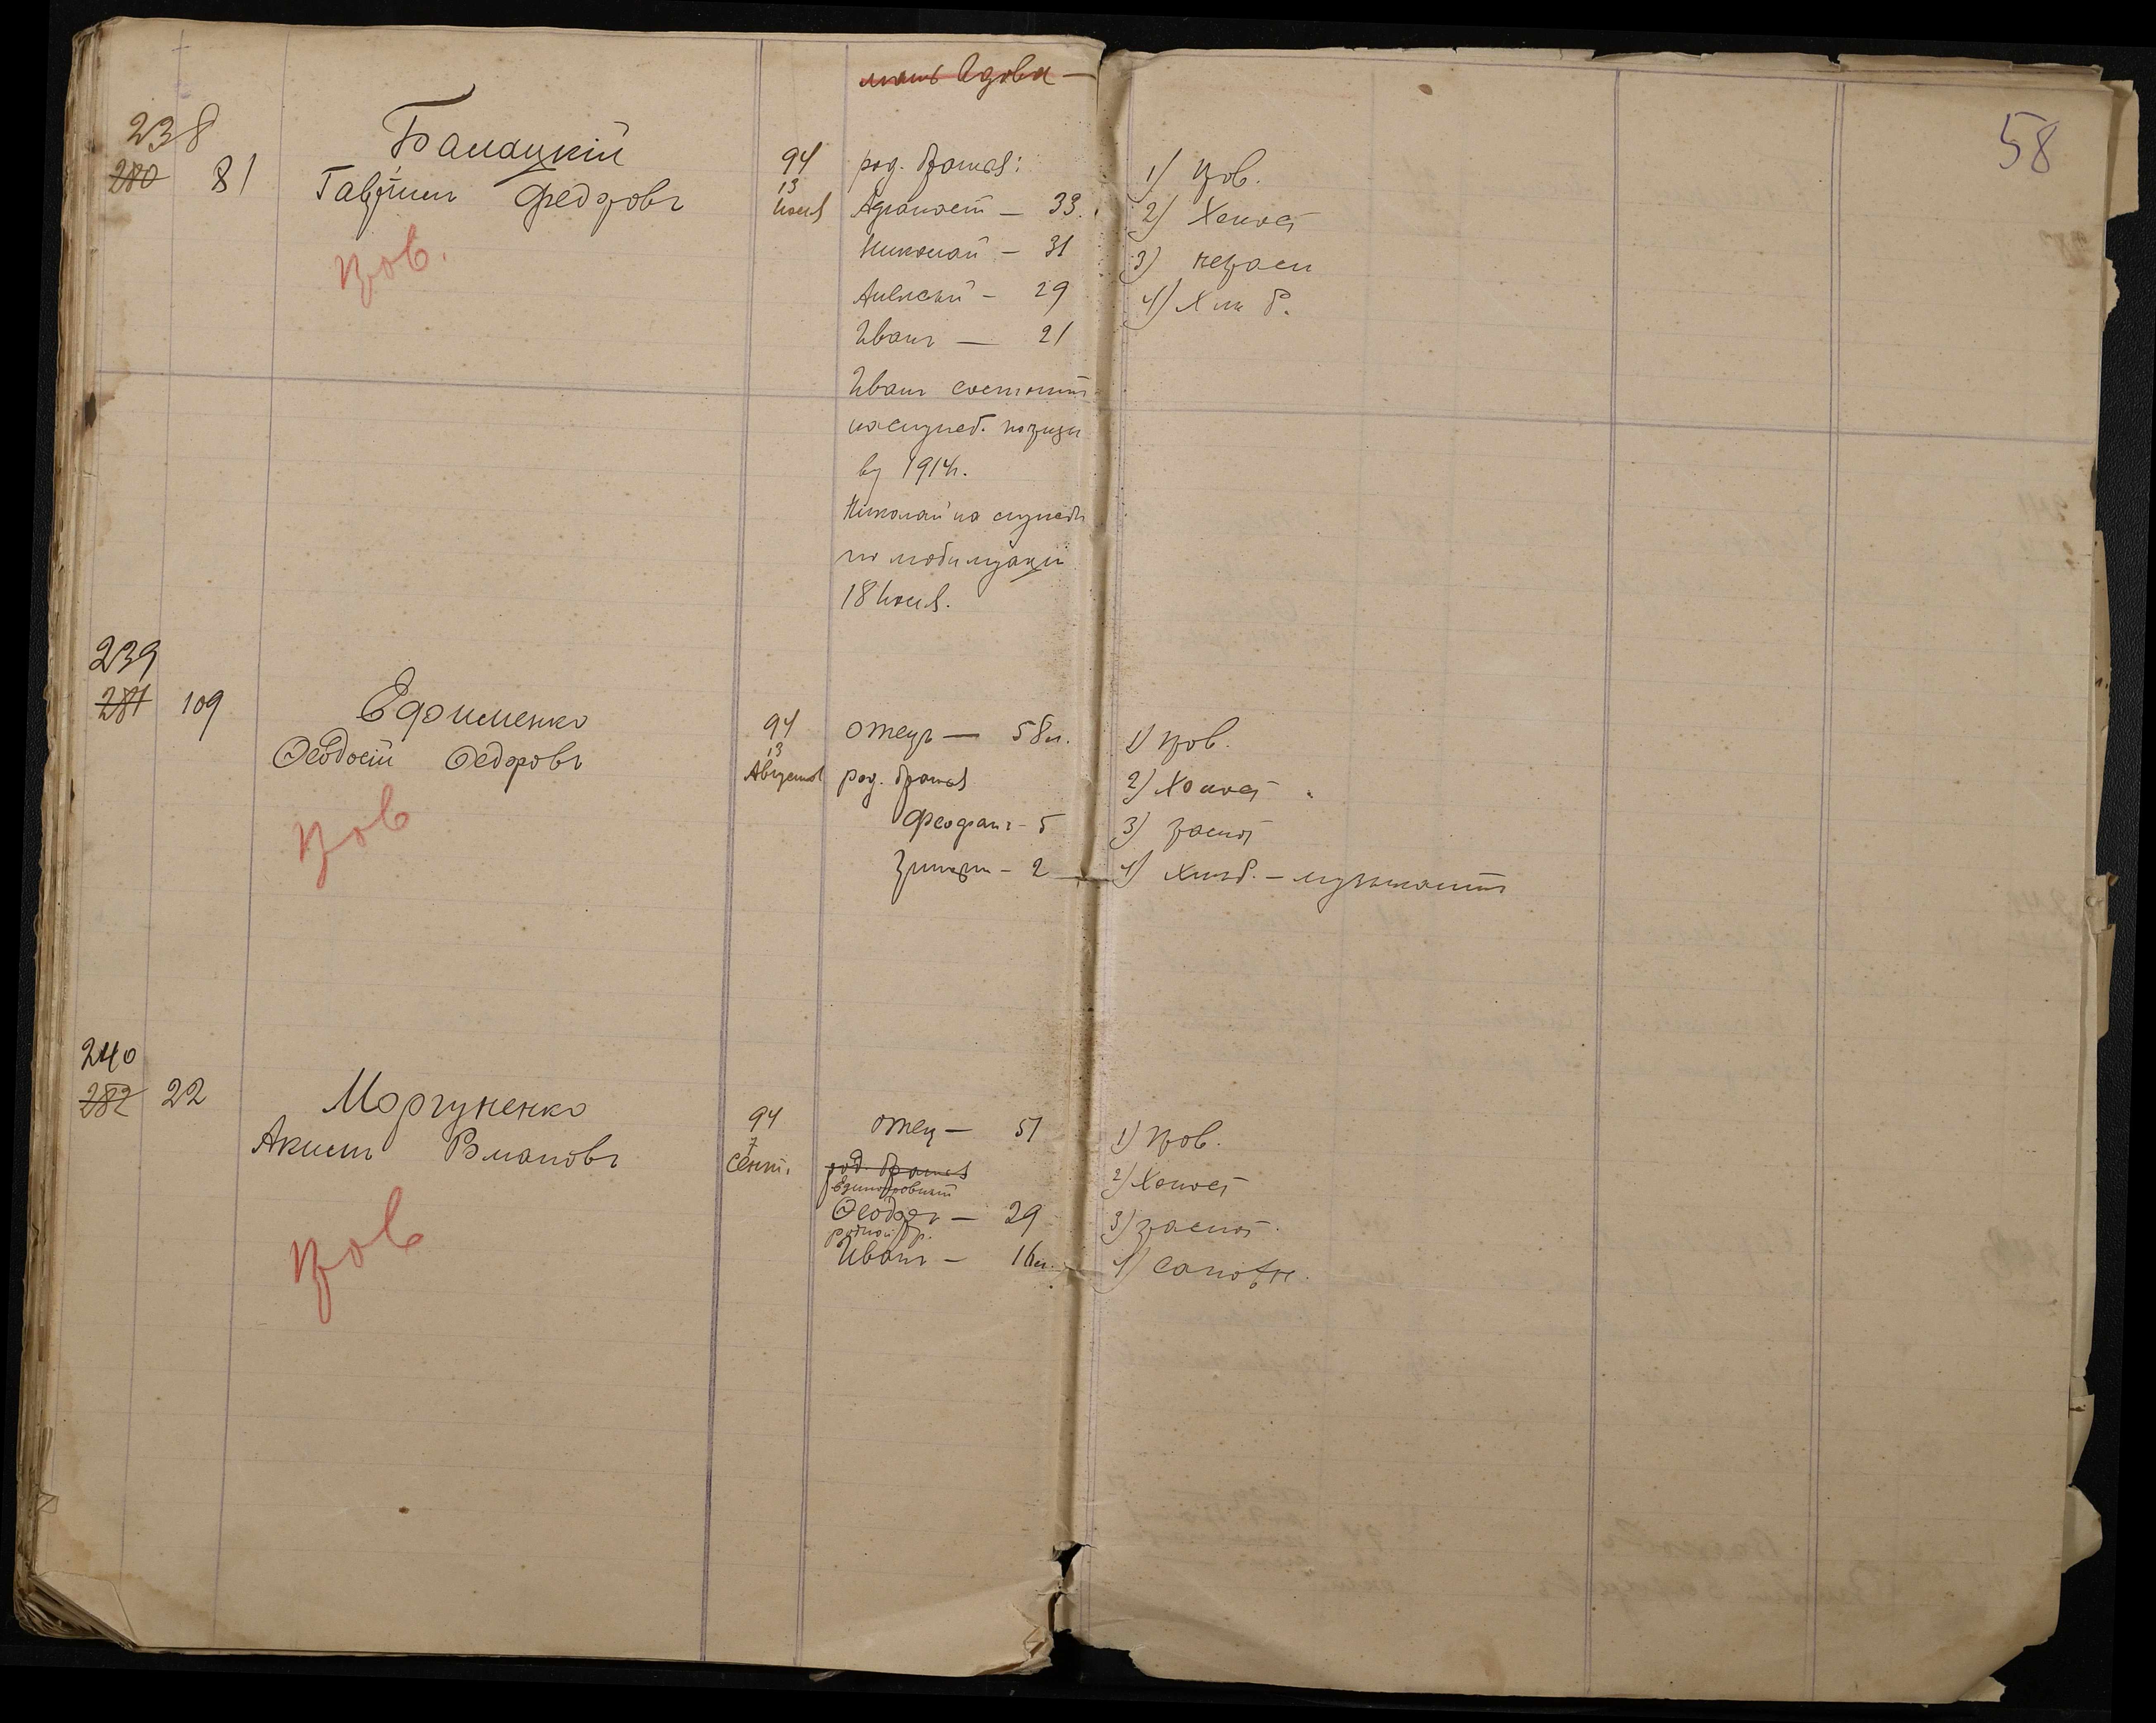 мать вдова —
58
238
280 81
Балацкій
Гавріилъ Федоровъ
94
13
Іюля
род. братья:
Афанасій — 33.
Николай — 31
Алексѣй — 29
Иванъ — 21
Иванъ состоитъ
на служб. призыв
въ 1914г.
Николай на службѣ
по мобилизаціи
18 Іюля.
1) Здов.
2) Холост
3) неграм
4) Хлѣб.
Здов.
239
281 109
Евфименко
Ѳеодосій Ѳедоровъ
94
13
Августа
отецъ — 58 л.
род. братья
Феофанъ - 5
- 2
1) Здов.
2) Холост
3) грамот
4) Хлѣб. — музыкантъ
Здов
240
282 22
Моргуненко
Акимъ
94
7
Сент.
отец — 51
род. братья
Единокровный
Ѳеодоръ — 29
родной бр.
Иванъ — 16 л.
1) Здов.
2) Холост
3) грамот
4) Сапожн.
Здов